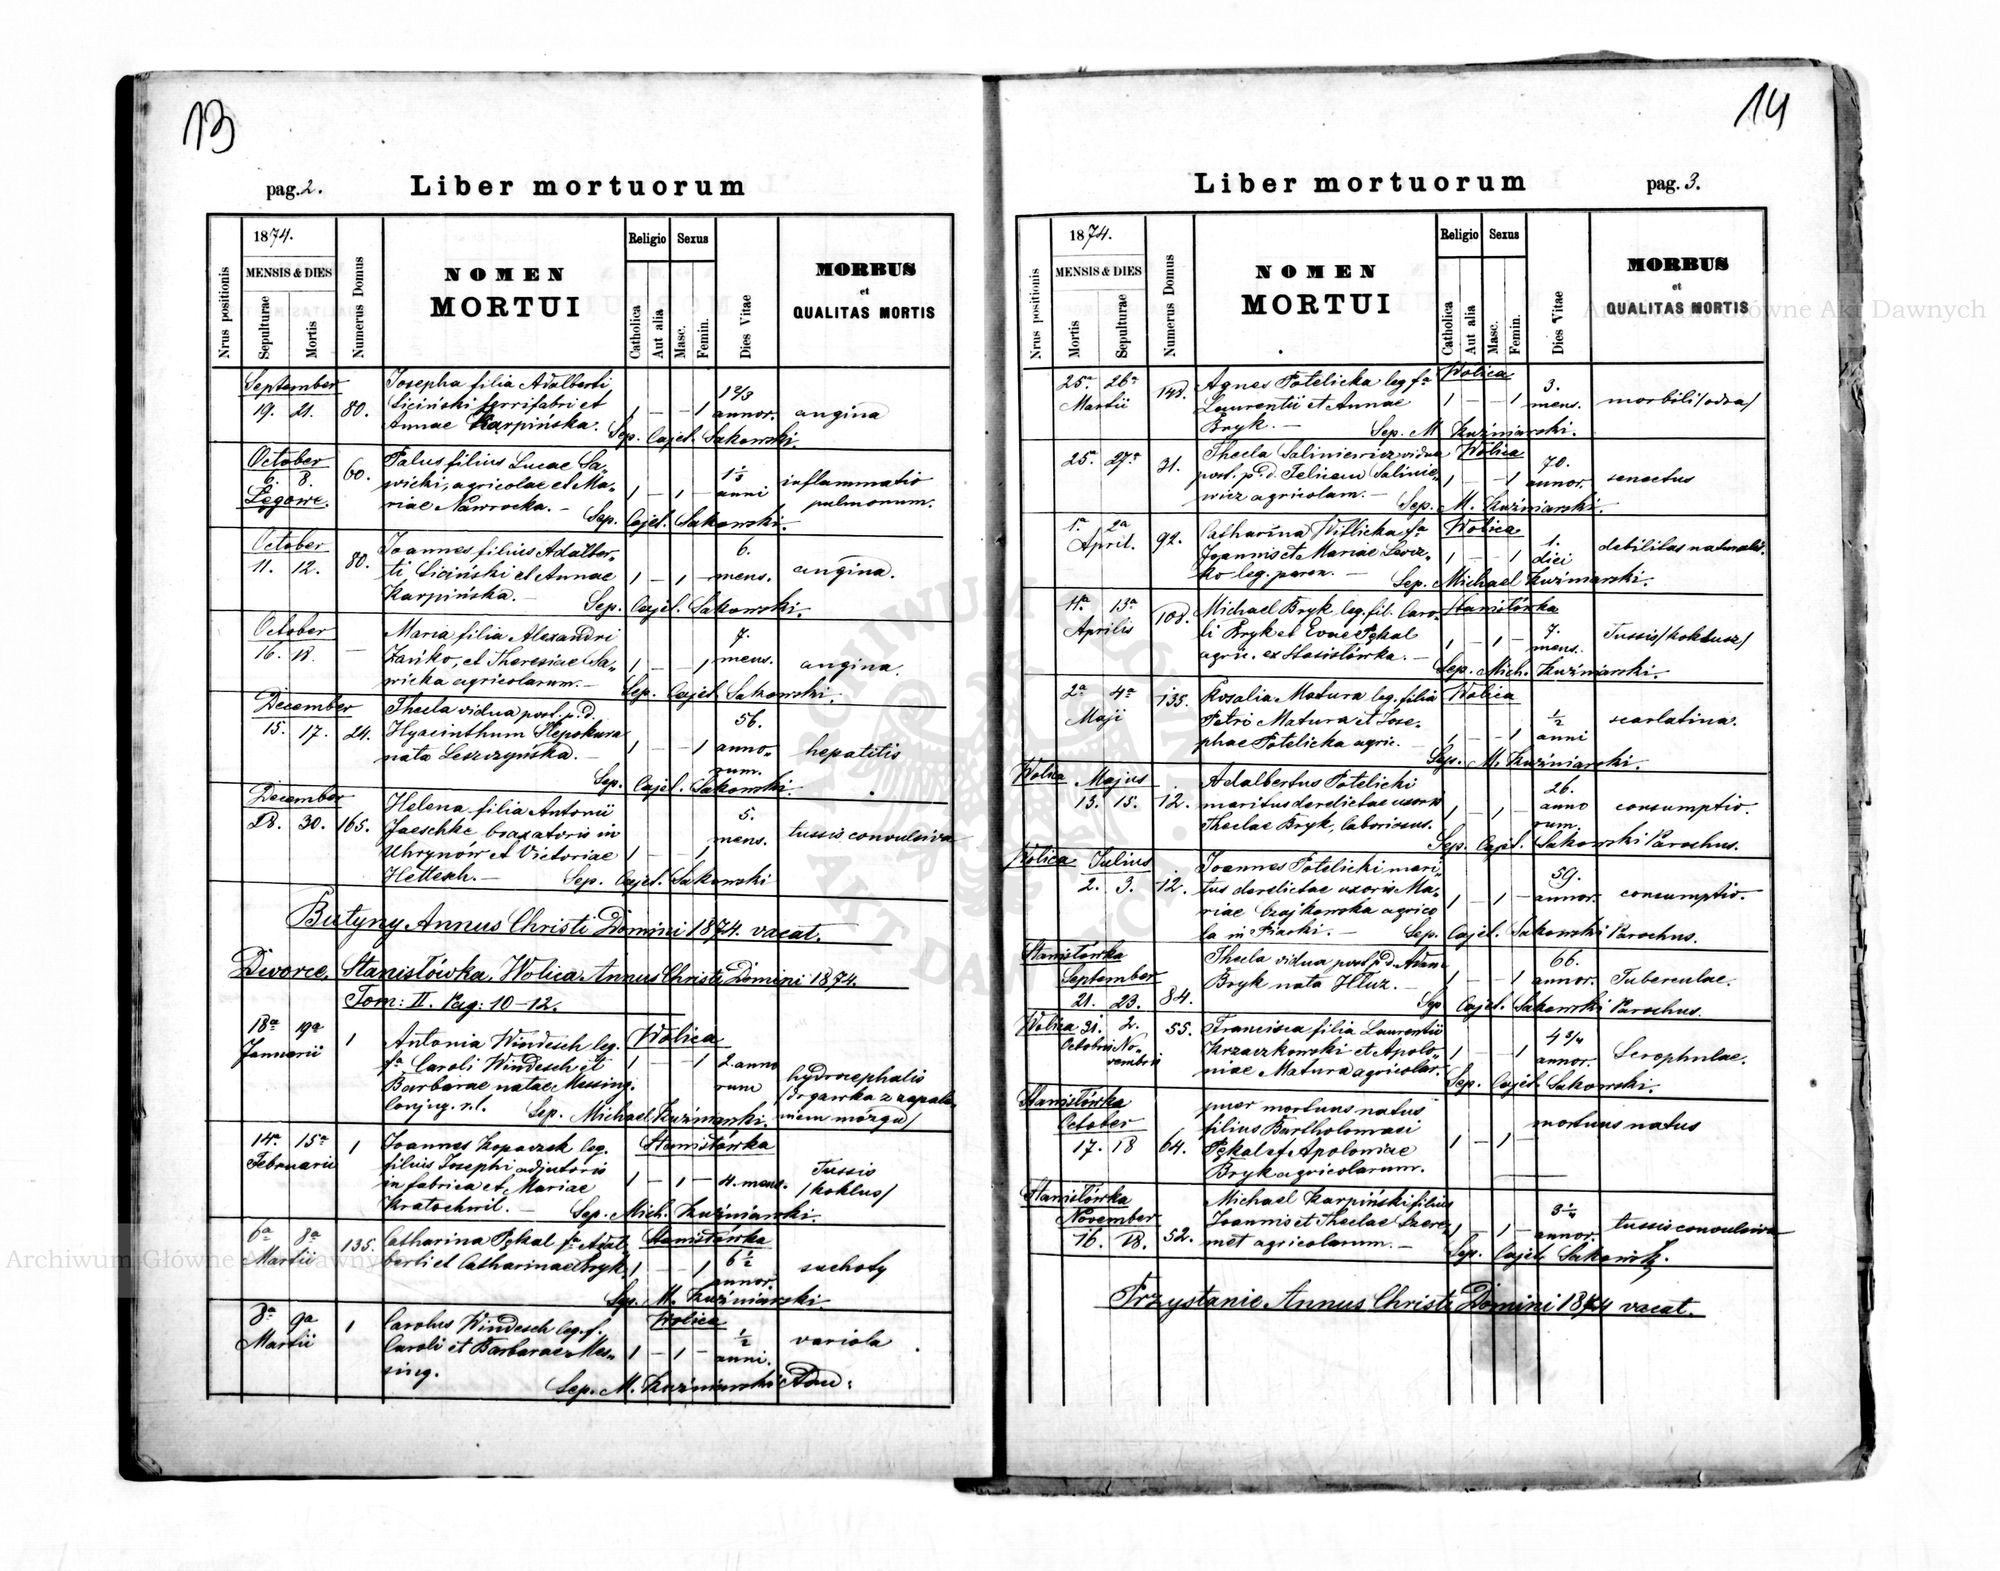 13
pag. 2.
Liber mortuorum
Nrus positionis
1874.
MENSIS & DIES
Sepulturae
Mortis
Numerus Domus
NOMEN
MORTUI
Religio
Sexus
Catholica
Aut alia
Masc.
Femin.
Dies Vitae
MORBUS
et
QUALITAS MORTIS
September
19. 21.
80.
Josepha filia Adalberti
Siciński ferrifabri et
Annae Karpińska.
1 — — 1
1 2/3
annor.
angina
Sep. Cajet. Sakowski.
October
6. 8.
Łęgowe.
60.
filius Lucae Sa-
wicki, agricolae et Ma-
riae Nawrocka. —
1 — 1 —
anni
inflammatio
pulmonum.
Sep. Cajet. Sakowski.
October
11. 12.
80.
Joannes filius Adalber-
ti Siciński et Annae
Karpińska. —
1 — 1 —
6.
mens.
angina.
Sep. Cajet. Sakowski.
October
16. 18.
—
Maria filia Alexandri
Zańko, et Theresiae Sa-
wicka agricolarum. —
1 — — 1
7.
mens.
angina.
Sep. Cajet. Sakowski.
December
15. 17.
24.
Thecla vidua post. p. d.
Hyacinthum Niepokura
nata Leszczyńska. —
1 — — 1
56.
anno-
rum.
hepatitis
Sep. Cajet. Sakowski.
December
28. 30.
165.
Helena filia Antonii
Jaeschke braxatoris in
Uhrynów et Victoriae
Hettesch. —
1 — — 1
5.
mens.
tussis convulsiva
Sep. Cajet. Sakowski
Butyny Annus Christi Domini 1874. vacat.
Dworce, Stanisłówka, Wolica Annus Christi Domini 1874.
Tom: II. Pag: 10-12.
18a 19a
Januarii
1
Antonia Windesch leg.
fa Caroli Windesch et
Barbarae natae Messing.
Conjug. r. l.
Wolica
1 — — 1
2. anno
rum
hydrocephalis
/drgawka z zapale-
niem mózgu/
Sep. Michael Kuźniarski.
14a 15a
Februarii
1
Joannes Kopaczek leg.
filius Josephi adjutoris
in fabrica et Mariae
Kratochwil. —
Stanisłówka
1 — 1 —
4. mens.
Tussis
/koklus/
Sep. Mich. Kuźniarski.
6a 8a
Martii
135.
Catharina Pękal fa Adal-
berti et Catharinae Bryk.
Stanisłówka
1 — — 1
6 1/2
annor.
suchoty
Sep. M. Kuźniarski
8a 9a
Martii
1
Carolus Windesch leg. f.
Caroli et Barbarae Mes-
sing.
Wolica
1 — 1 —
1/2
anni.
variola
Sep. M. Kuźniarski Adm:
14
Liber mortuorum
pag. 3.
Nrus positionis
1874.
MENSIS & DIES
Mortis
Sepulturae
Numerus Domus
NOMEN
MORTUI
Religio
Sexus
Catholica
Aut alia
Masc.
Femin.
Dies Vitae
MORBUS
et
QUALITAS MORTIS
25a 26a
Martii
Agnes Potelicka leg. fa
Laurentii et Annae
Bryk. —
Wolica
1 — — 1
3.
mens.
morbili /odra/
Sep. M. Kuźniarski.
25a 27a
31.
Thecla Saliniewicz vidua
post. p. d. Felicem Salinie-
wicz agricolam. —
Wolica
1 — — 1
70.
annor.
senectus
Sep. M. Kuźniarski.
1a 2a
April.
92.
Catharina Witlicka fa
Joannis et Mariae
ko leg. paren. —
Wolica
1 — — 1
1.
diei
debilitas naturalis.
Sep. Michael Kuźniarski.
11a 13a
Aprilis
108.
Michael Bryk leg. fil. Caro-
li Bryk et Evae Pękal
agric. ex Stanisłówka. —
Stanisłówka
1 — 1 —
7.
mens.
Tussis /koklusz/
Sep. Mich. Kuźniarski.
2a 4a
Maji
135.
Rosalia Matura leg. filia
Petri Matura et Jose-
phae Potelicka agric. —
Wolica
1 — — 1
1/2
anni
scarlatina.
Sep. M. Kuźniarski.
Wolica Majus
13. 15.
12.
Adalbertus Potelicki
maritus derelictae uxoris
Theclae Bryk, laboriosus.
1 — 1 —
26.
anno
rum.
consumptio.
Sep. Cajet. Sakowski Parochus.
Wolica Julius
2. 3.
12.
Joannes Potelicki mari-
tus derelictae uxoris Ma-
riae Czajkowska agrico
la in Piaski. —
1 — 1 —
59.
annor.
consumptio.
Sep. Cajet. Sakowski Parochus.
Stanisłówka
September
21. 23.
84.
Thecla vidua post p. d. Adam
Bryk nata Hluz. —
1 — — 1
66.
annor.
Tuberculae.
Sep. Cajet. Sakowski Parochus.
Wolica 31. 2.
Octobris No-
vembris
55.
Francisca filia Laurentii
Krzaczkowski et Apolo-
niae Matura agricolar.
1 — — 1
4 3/4
annor.
Scrophulae.
Sep. Cajet. Sakowski.
Stanisłówka
October
17. 18
64.
puer mortuus natus
filius Bartholomaei
Pękal et Apoloniae
Bryk agricolarum.
1 — 1 —
mortuus natus
Stanisłówka
November
16. 18.
52.
Michael Karpiński filius
Joannis et Theclae Szere-
met agricolarum. —
1 — 1 —
3 1/4
annor.
tussis convulsiva
Sep. Cajet. Sakowski.
Przystanie Annus Christi Domini 1874 vacat.
Archiwum Główne Akt Dawnych
Archiwum Główne Akt Dawnych
ARCHIWUM GŁÓWNE AKT DAWNYCH